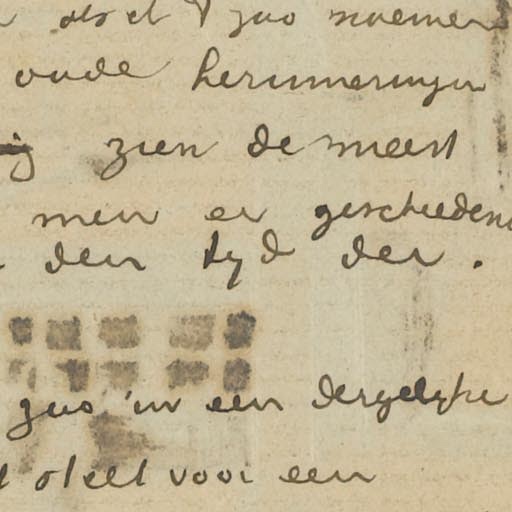 als et zoo noemen
oude herinneringen
zien de meest
men er geschieden
den tyd der.
zoo in een dergelyke
stelt voor een